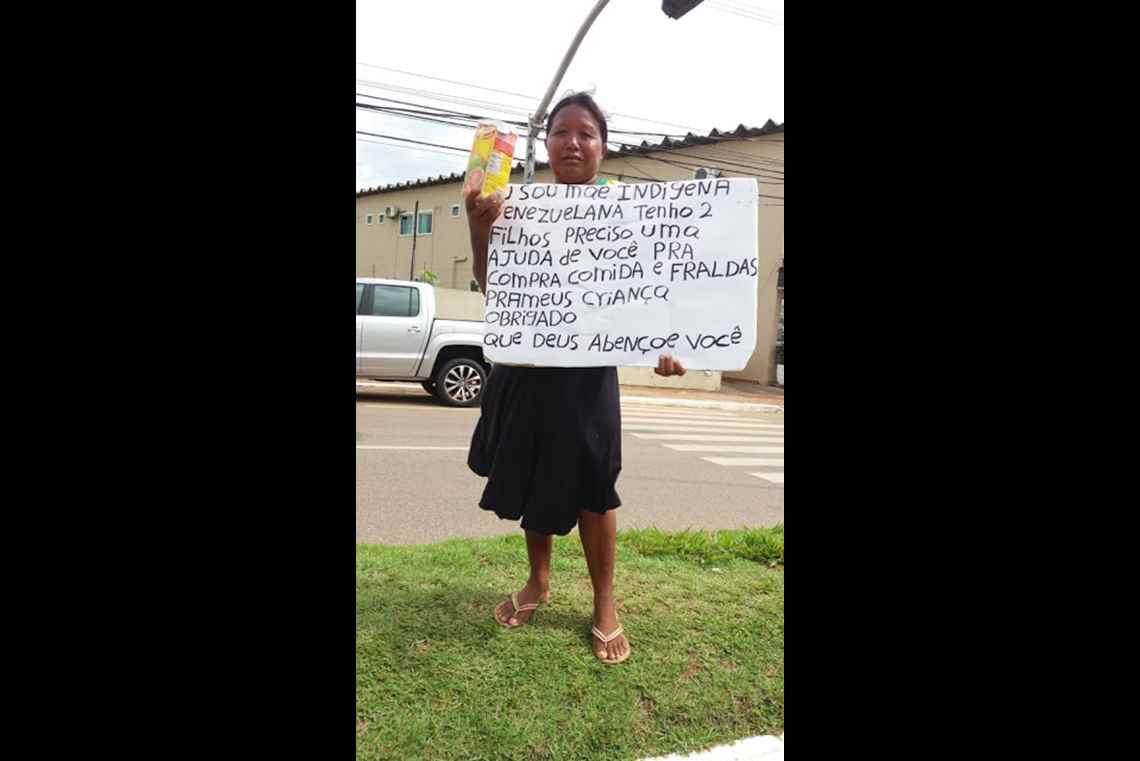 U SOU mãe INDIGENA
VENEZUELANA Tenho 2
FILHOS PRECISO uma
AJUDA de VOCÊ PRA
COmPRA COmIDA e FRALDAS
PRAMEUS CRIANÇA
OBRIGADO
QUE DEUS ABENÇOE VOCÊ